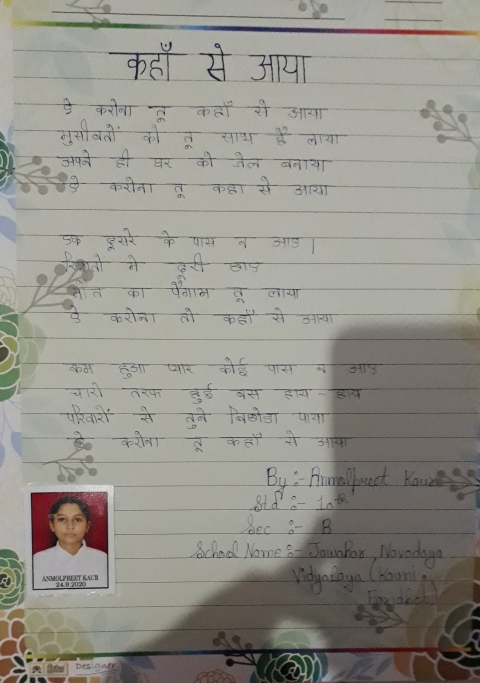 कहाँ से आया
ऐ करोना तू कहाँ से आया
मुसीबतों को तू साथ है लाया
अपने ही घर को जेल बनाया
ऐ करोना तू कहा से आया
एक दूसरे के पास न आए |
रिश्तो मे दूरी छाए
मौत का पैगाम तू लाया
ऐ करोना तो कहाँ से आया
कम हुआ प्यार कोई पास न आए
चारो तरफ हुई बस हाय - हाय
परिवारों से तुने बिछोडा पाया
ऐ करोना तू कहाँ से आया
By :- Anmolpreet Kaur
Std :- 10th
Sec :- B
School Name :- Jawahar Navodaya
Vidyalaya (Kauni,
Faridkot)
ANMOLPREET KAUR
24.9.2020
Designer